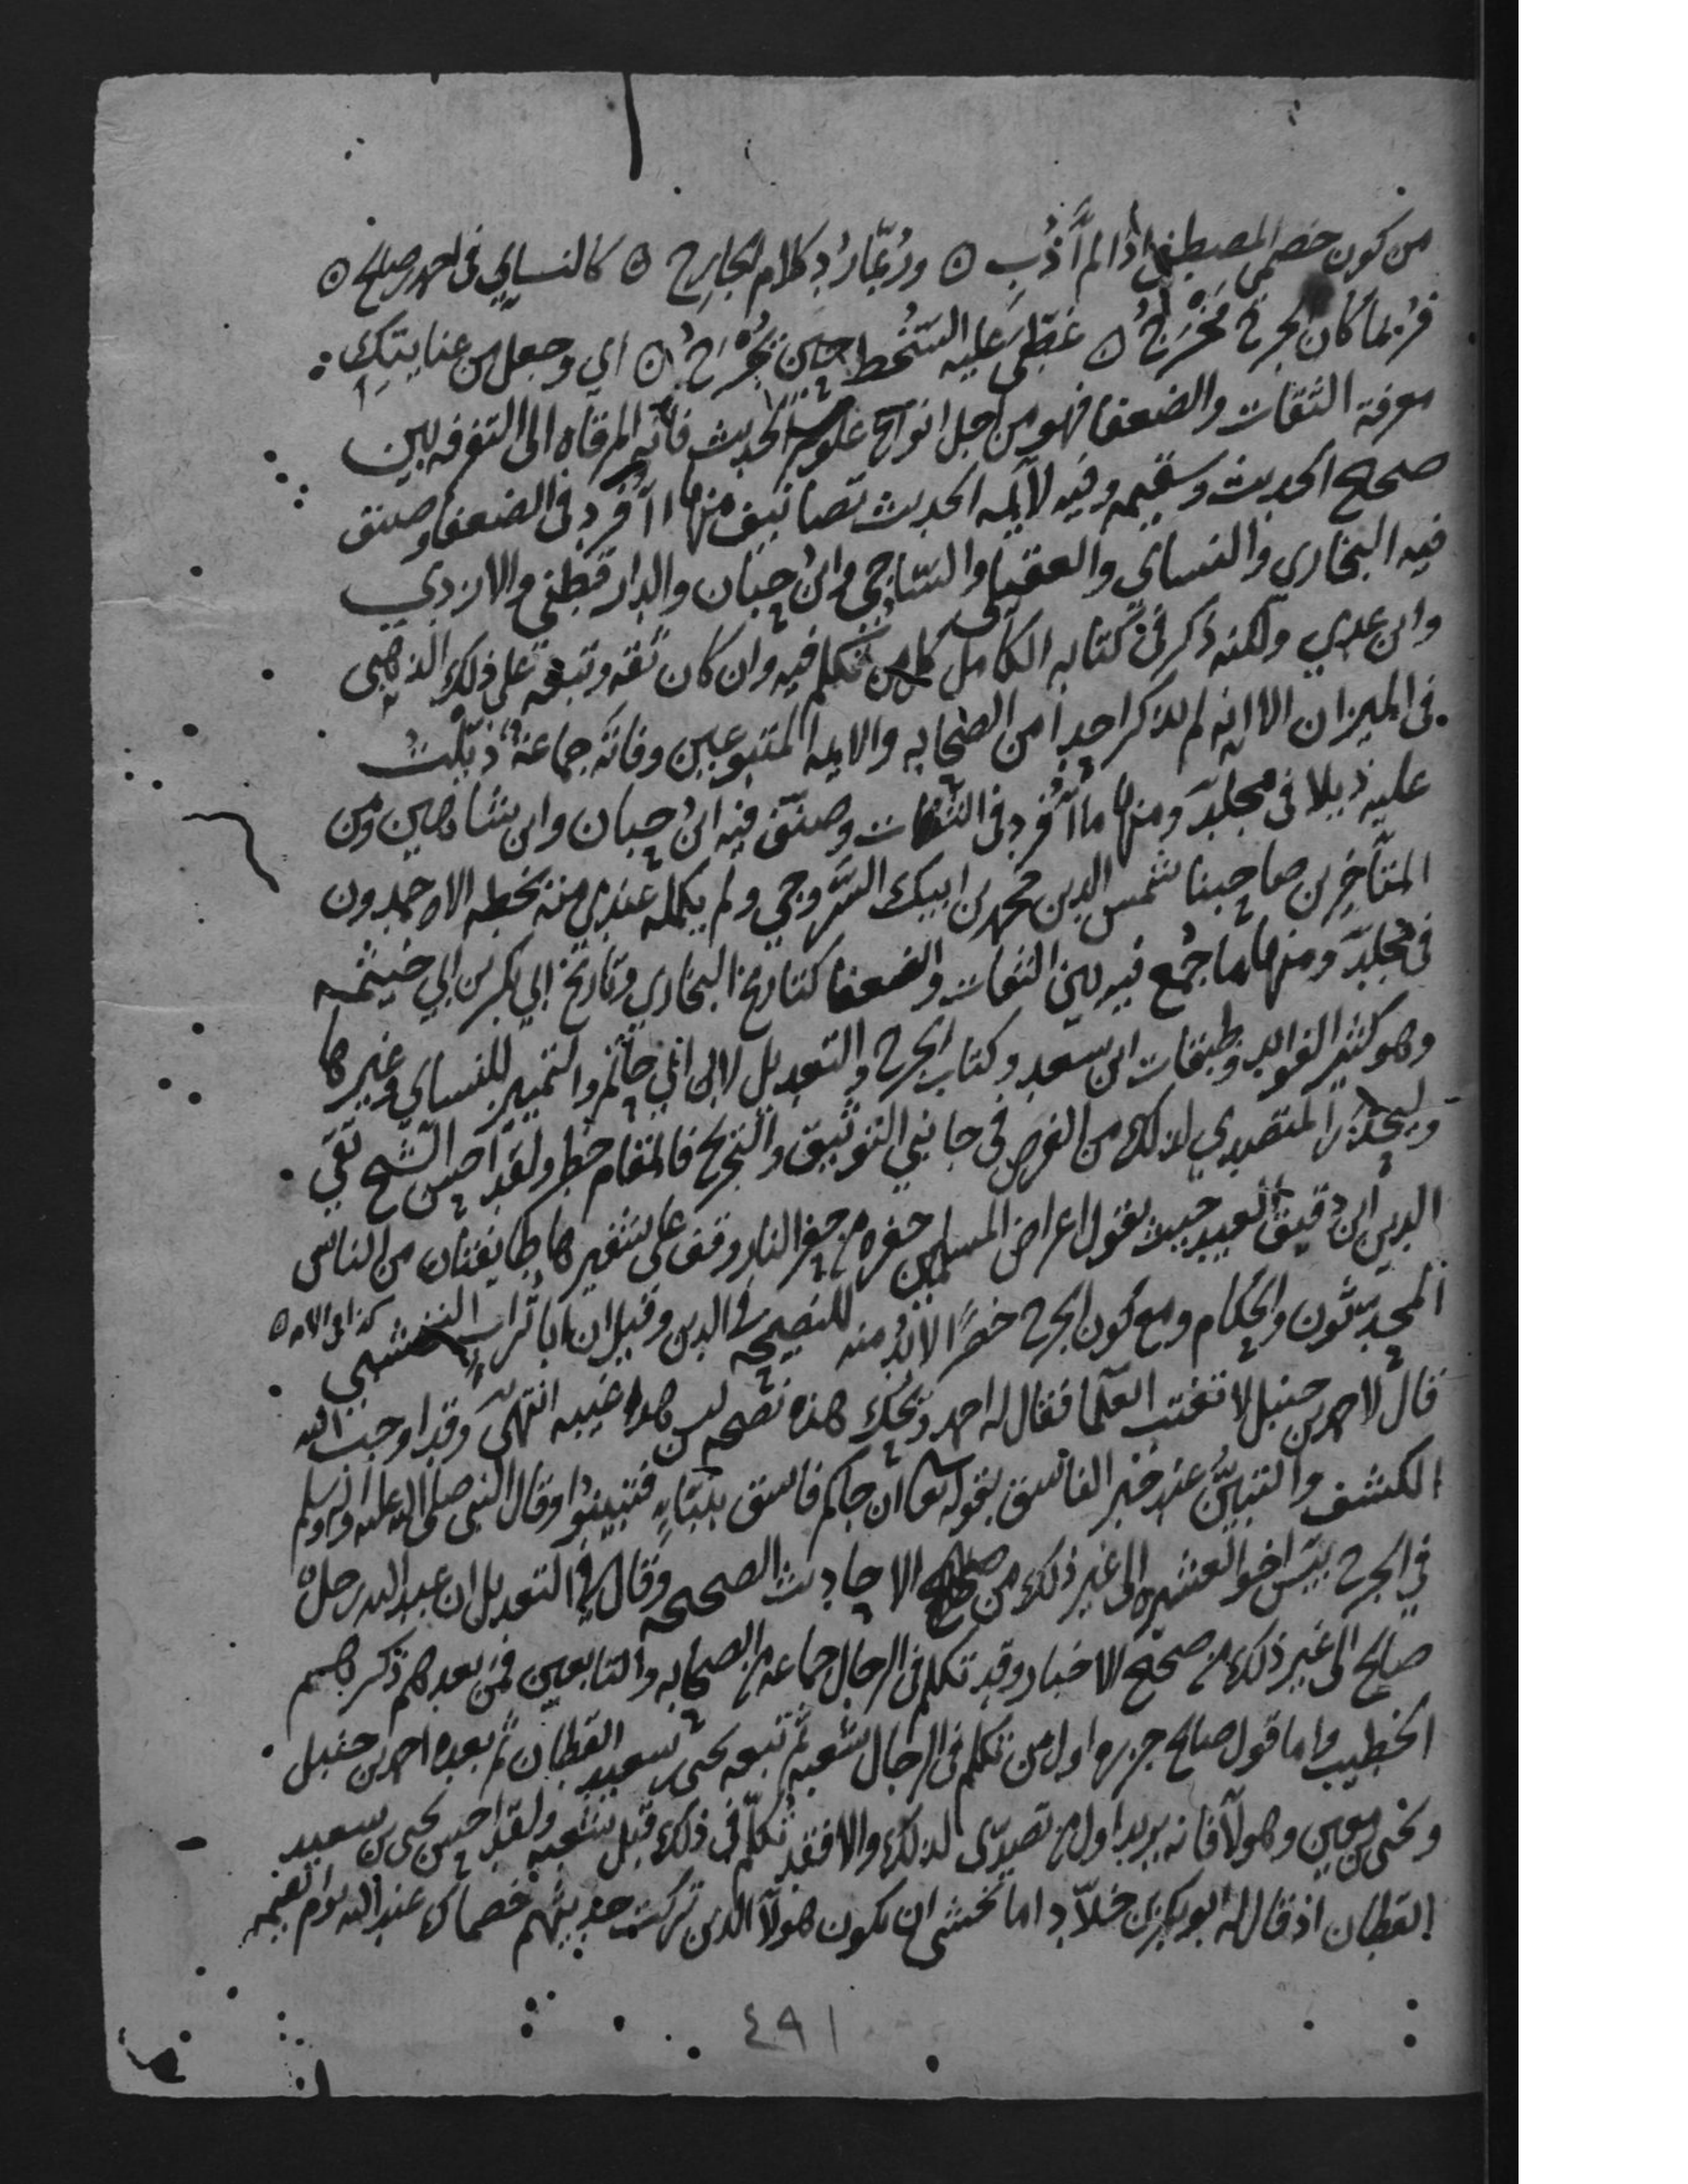 من كون خصمي المصطفى اذا لم أذب ه وربما رد كلام الجارح ه كالنساي في احمد بن صالح ه
فربما كان لجرح مخرج ه غطى عليه السخط حين يجرح ه اي وجعل من عنايتك
معرفة الثقات والضعفا فهو من اجل انواع علوم الحديث فانه المرقاه الى التفرقه بين
صحيح الحديث وسقيمه وفيه لايمه الحديث تصانيف منها ما أفرد في الضعفا وصنف
فيه البخاري والنساي والعقيلي والساجي وابن حبان والدارقطني والازدي
وابن عدي ولكنه ذكر في كتابه الكامل كل من تكلم فيه وان كان ثقه وتبعه على ذلك الذهبي
في الميزان الا انه لم يذكر احدا من الصحابه والايمه المتبوعين وفاته جماعة ذيلت
عليه ذيلا في مجلد ومنها ما أفرد في الثقات وصنف فيه ابن حبان وابن شاهين ومن
المتأخرين صاحبنا شمس الدين محمد بن ايبك السروجي ولم يكمله عندي منه بخطه الاحمدون
في مجلد ومنها ما جمع فيه بين الثقات والضعفا كتاريخ البخاري وتاريخ ابي بكر بن ابي خيثمه
وهو كثير الفوايد وطبقات ابن سعد وكتاب الجرح والتعديل لابن ابي حاتم والتمييز للنساي وغيرها
وليحذر المتصدي لذلك من الغرض في جانبي التوثيق والتجريح فالمقام خطر ولقد احسن الشيخ تقي
الدين ابن دقيق العيد حيث يقول اعراض المسلمين حفره من حفر النار وقف على شفيرها طايفتان من الناس
المحدثون والحكام ومع كون الجرح خطرا لابد منه للنصيحه في الدين وقيل ان ابا تراب النخشبي
قال لاحمد بن حنبل لا تغتب العلما فقال له احمد ويحك هذه نصيحه ليس هذا غيبه انتهى وقد اوجب الله
الكشف والتبين عند خبر الفاسق بقوله تعالى ان جاكم فاسق بنبإ فتبينوا وقال النبي صلى الله عليه وآله وسلم
في الجرح بيس اخو العشيره الى غير ذلك من صحيح الاحاديث الصحيحه وقال في التعديل ان عبد الله رجل
صالح الى غير ذلك من صحيح الاخبار وقد تكلم في الرجال جماعه من الصحابه والتابعين فمن بعدهم ذكرهم
الخطيب واما قول صالح جزره اول من تكلم في الرجال شعبه ثم تبعه يحيى بن سعيد القطان ثم بعده احمد بن حنبل
ويحيى بن معين وهولا فانه يريد اول من تصدى لذلك والا فقد تكلم في ذلك قبل شعبه ولقد احسن يحيى بن سعيد
القطان اذ قال له ابو بكر بن خلاد اما تخشى ان يكون هولا الذين تركت حديثهم خصماك عند الله يوم القيمه
٤٩١